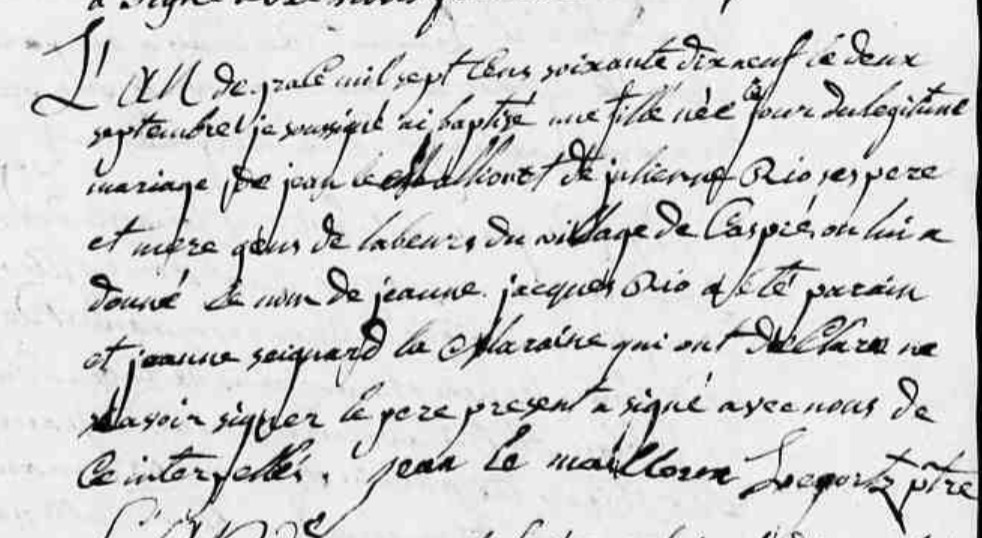 L'AN de grace mil sept cens soixante dix neuf le deux
septembre je soussigné ai baptisé une fille née ce jour du legitime
mariage de jean le et de julienne Rio ses pere
et mere gens de labeurs du village de Caspré, on lui a
donné le nom de jeanne. jacques Rio a été parain
et jeanne seignard la Maraine qui ont déClaré ne
savoir signer le pere present a signé avec nous de
Ce interpellés. jean le mailloux Legortz ptre